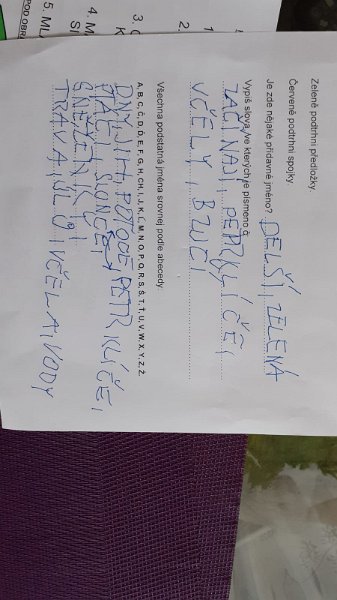 Zeleně podtrhni předložky.
Červeně podtrhni spojky.
Je zde nějaké přídavné jméno? DELŠÍ, ZELENÁ
Vypiš slova, ve kterých je písmeno č.
ZAČÍNAJÍ, PETRKLÍČE,
VČELY, BZUČÍ
Všechna podstatná jména srovnej podle abecedy:
A, B, C, Č, D, Ď, E, F, G, H, CH, I, J, K, L, M, N, O, P, Q, R, S, Š, T, Ť, U, V, W, X, Y, Z, Ž
DNY, JIH, POTOCE, PETRKLÍČE,
PTÁCI, SLUNCE,
SNEŽENKY,
TRÁVA, ÚLŮ, VČELA, VODY
3.
4. M
5. ML
2.
POD OBR